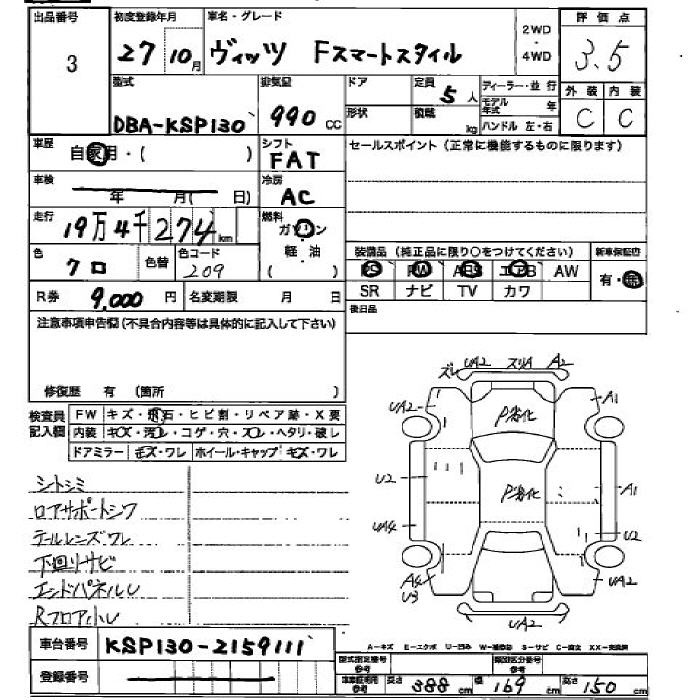 出品番号 初度登録年月 車名・グレード 2WD・4WD 評価点
3 27 10月 ヴィッツ Fスマートスタイル 3.5
型式 排気量 ドア 定員 5人 ディーラー・並行 外装 内装
DBA-KSP130 990cc 形状 積載 kg モデル年式 年 ハンドル 左・右 C C
車歴 自家用・( ) シフト FAT セールスポイント(正常に機能するものに限ります)
車検 年 月( 日) 冷房 AC
走行 19万4千274km 燃料 ガソリン 軽・油 ( )
装備品(純正品に限り○をつけてください) 新車保証書
色 クロ 色替 色コード 209
PS PW ABS エアB AW 有・無
SR ナビ TV カワ
R券 9,000円 名変期限 月 日 後日品
注意事項申告欄(不具合内容等は具体的に記入して下さい)
修復歴 有 (箇所 )
検査員記入欄
FW キズ・飛石・ヒビ割・リペア跡・X要
内装 キズ・汚レ・コゲ・穴・スレ・ヘタリ・破レ
ドアミラー キズ・ワレ ホイール・キャップ キズ・ワレ
シトシミ
ロアサポートシワ
テールレンズワレ
下回リサビ
エンドパネルU
Rフロア小U
ズレ UA2 スリA A2
UA2 A1
P劣化
U2 P劣化 A1
UA4 U2
A4 U3 UA2
UA2
車台番号 KSP130-2159111
登録番号
A-キズ E-エクボ U-凹み W-補修跡 S-サビ C-腐食 XX-交換済
型式指定番号 参考 類別区分番号 参考
車庫証明用 参考 長さ 388cm 幅 169cm 高さ 150cm